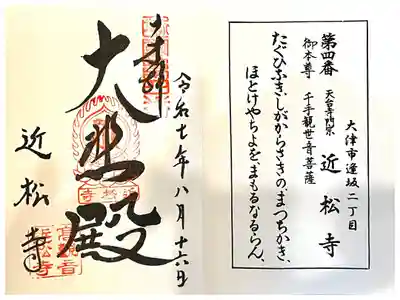 大津市逢坂二丁目
第四番 天台寺門宗 近松寺
御本尊 千手観世音菩薩
たぐひなきしがからさきの、まつちかき、
ほとけやちよを、まもるなるらん、
奉拝
令和七年八月十六日
大悲殿
近松寺